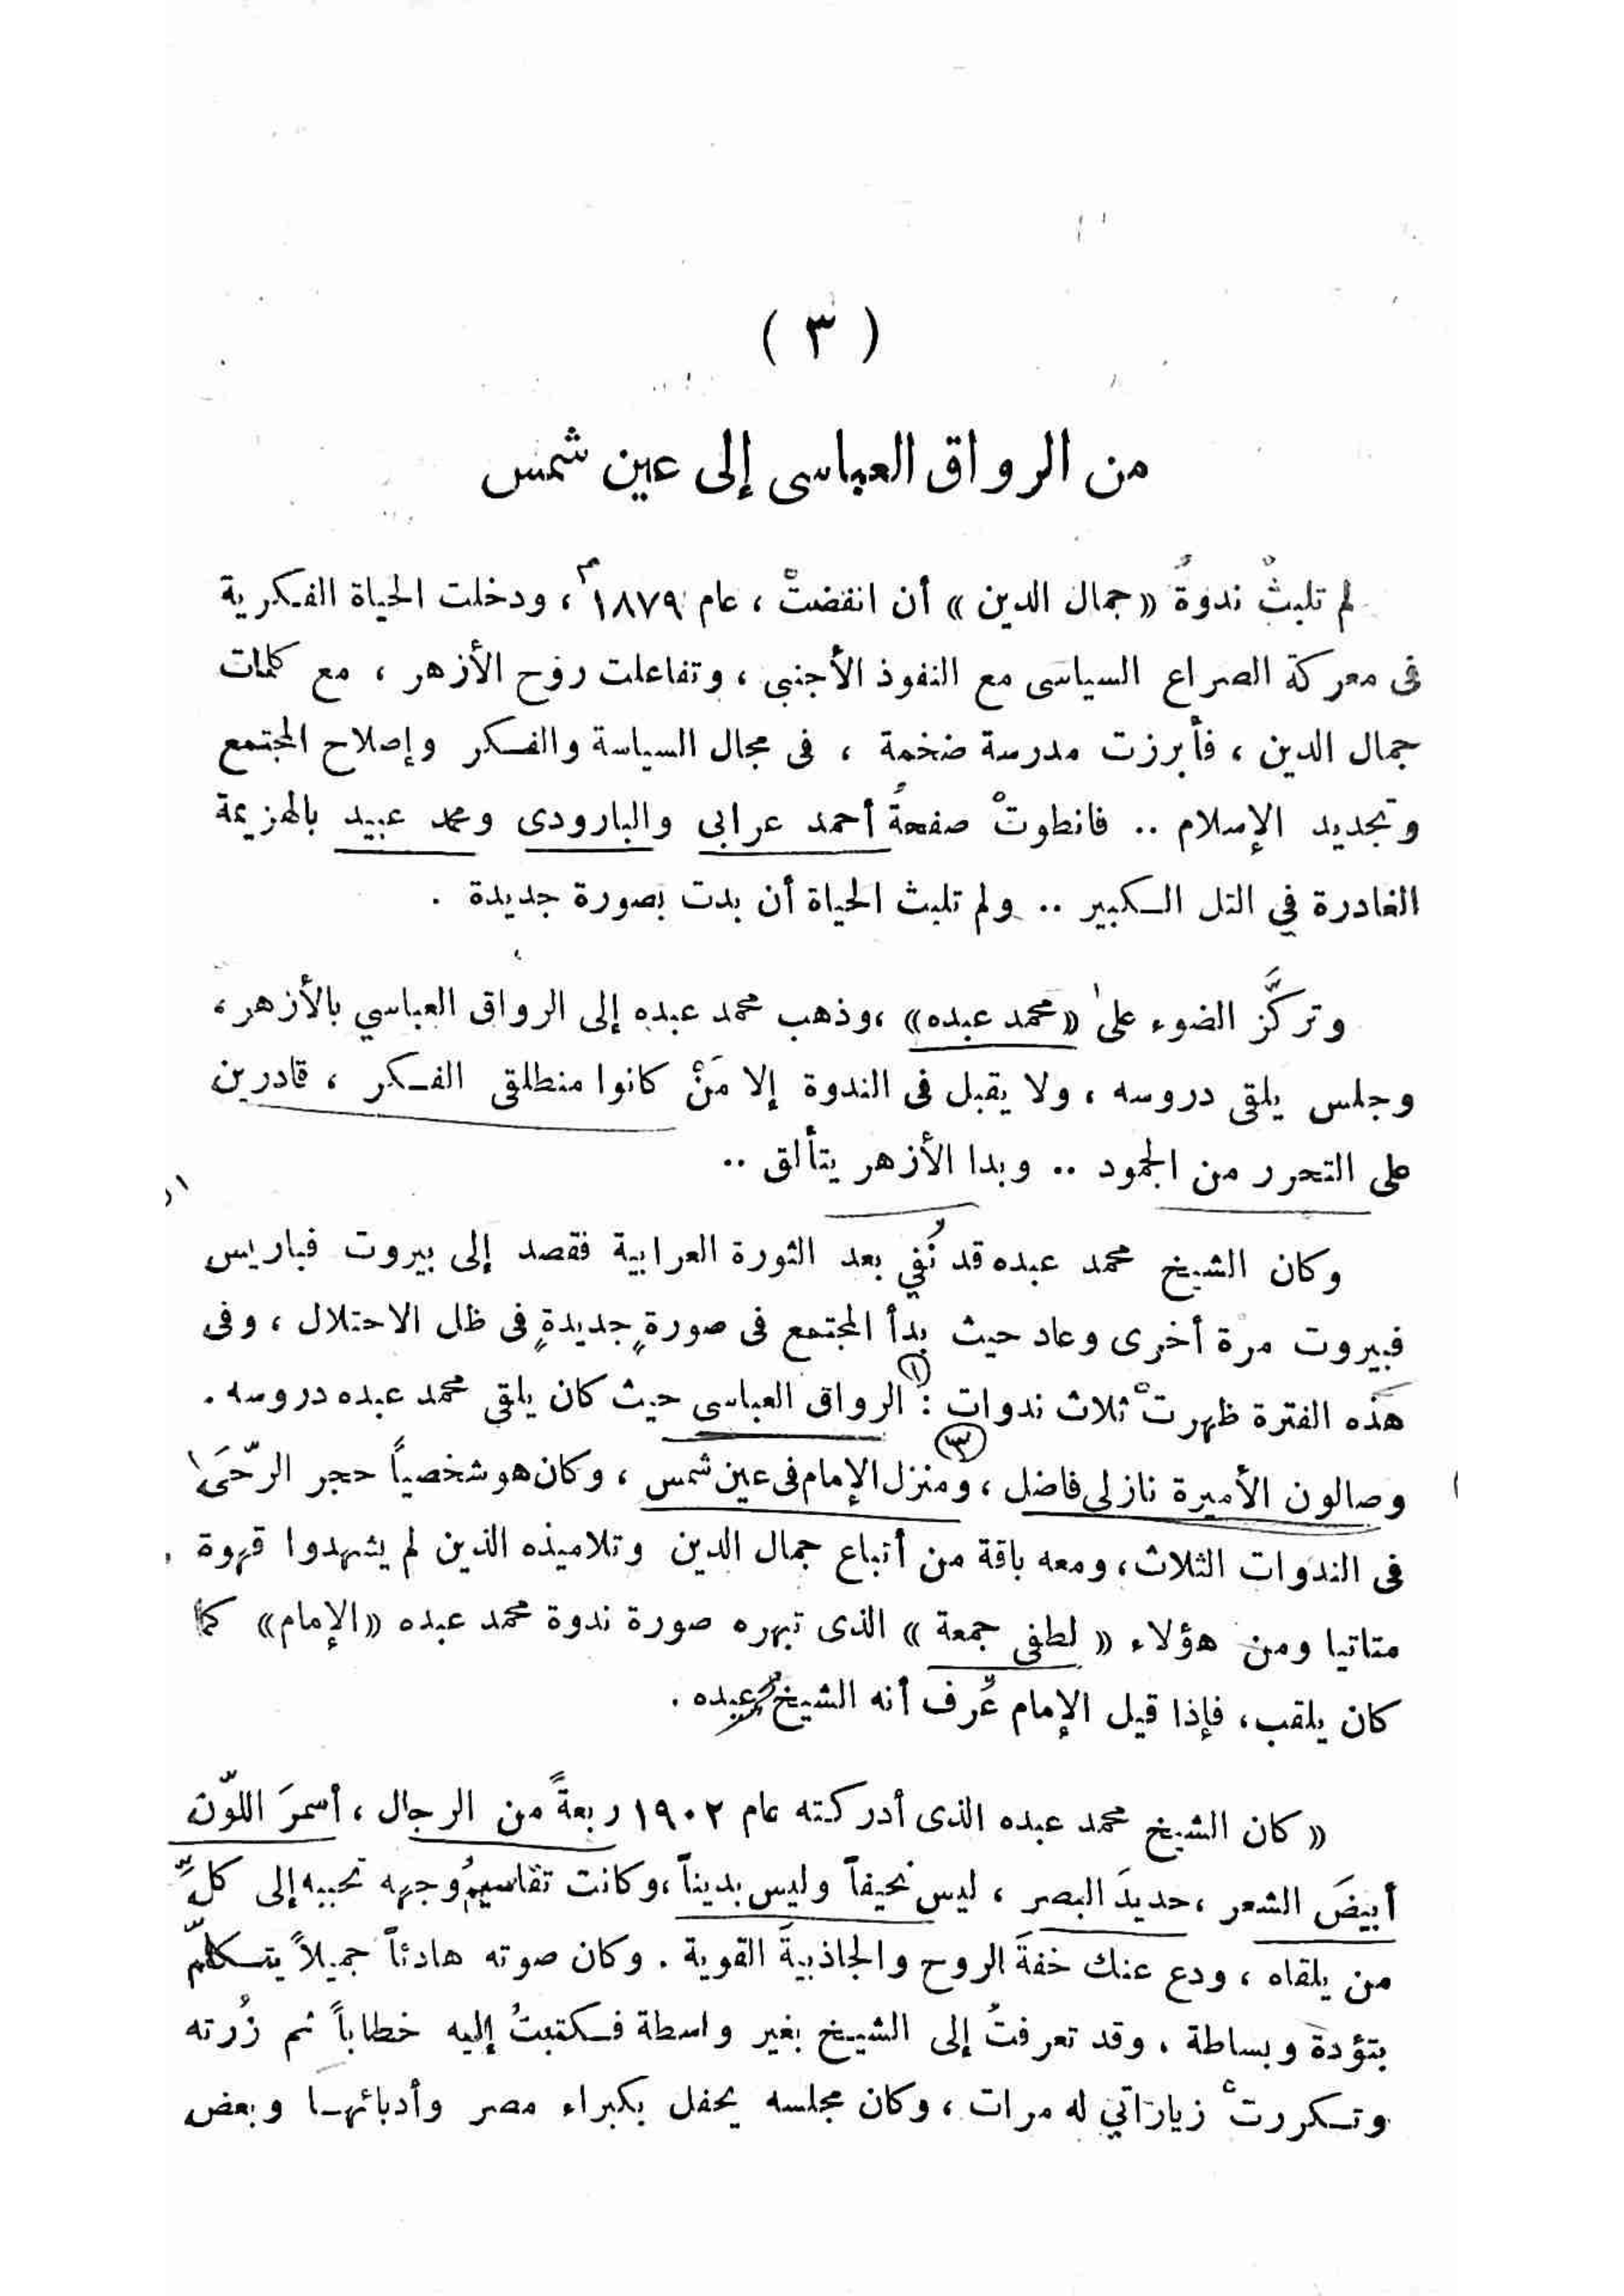 ( ٣ )
من الرواق العباسى إلى عين شمس
لم تلبثْ ندوةُ « جمال الدين » أن انفضتْ ، عام ١٨٧٩م ، ودخلت الحياة الفكرية
فى معركة الصراع السياسى مع النفوذ الأجنبى ، وتفاعلت روح الأزهر ، مع كلمات
جمال الدين ، فأبرزت مدرسة ضخمة ، فى مجال السياسة والفكر وإصلاح المجتمع
وتجديد الإسلام .. فانطوتْ صفحةُ أحمد عرابى والبارودى ومحمد عبيد بالهزيمة
الغادرة في التل الكبير .. ولم تلبث الحياة أن بدت بصورة جديدة .
وتركَّز الضوء على « محمد عبده » ، وذهب محمد عبده إلى الرواق العباسي بالأزهر ،
وجلس يلقى دروسه ، ولا يقبل فى الندوة إلا مَنْ كانوا منطلقى الفكر ، قادرين
على التحرر من الجمود .. وبدا الأزهر يتألق ..
وكان الشيخ محمد عبده قد نُفي بعد الثورة العرابية فقصد إلى بيروت فباريس
فبيروت مرة أخرى وعاد حيث بدأ المجتمع فى صورةٍ جديدةٍ فى ظل الاحتلال ، وفى
هذه الفترة ظهرتْ ثلاث ندوات : (١) الرواق العباسى حيث كان يلقي محمد عبده دروسه .
وصالون الأميرة نازلى فاضل ، (٣) ومنزل الإمام فى عين شمس ، وكان هو شخصياً حجر الرّحَى
فى الندوات الثلاث ، ومعه باقة من أتباع جمال الدين وتلاميذه الذين لم يشهدوا قهوة
متاتيا ومن هؤلاء « لطفى جمعة » الذى تبهره صورة ندوة محمد عبده « الإمام » كما
كان يلقب ، فإذا قيل الإمام عُرف أنه الشيخ عبده .
« كان الشيخ محمد عبده الذى أدركته عام ١٩٠٢ ربعةً من الرجال ، أسمرَ اللّون
أبيضَ الشعر ، حديدَ البصر ، ليس نحيفاً وليس بديناً ، وكانت تقاسيمُ وجهه تحببه إلى كلِّ
من يلقاه ، ودع عنك خفةَ الروح والجاذبيةَ القوية . وكان صوته هادئاً جميلاً يتكلّم
بتؤدة وبساطة . وقد تعرفتُ إلى الشيخ بغير واسطة فكتبتُ إليه خطاباً ثم زُرته
وتكررتْ زياراتي له مرات ، وكان مجلسه يحفل بكبراء مصر وأدبائها وبعض